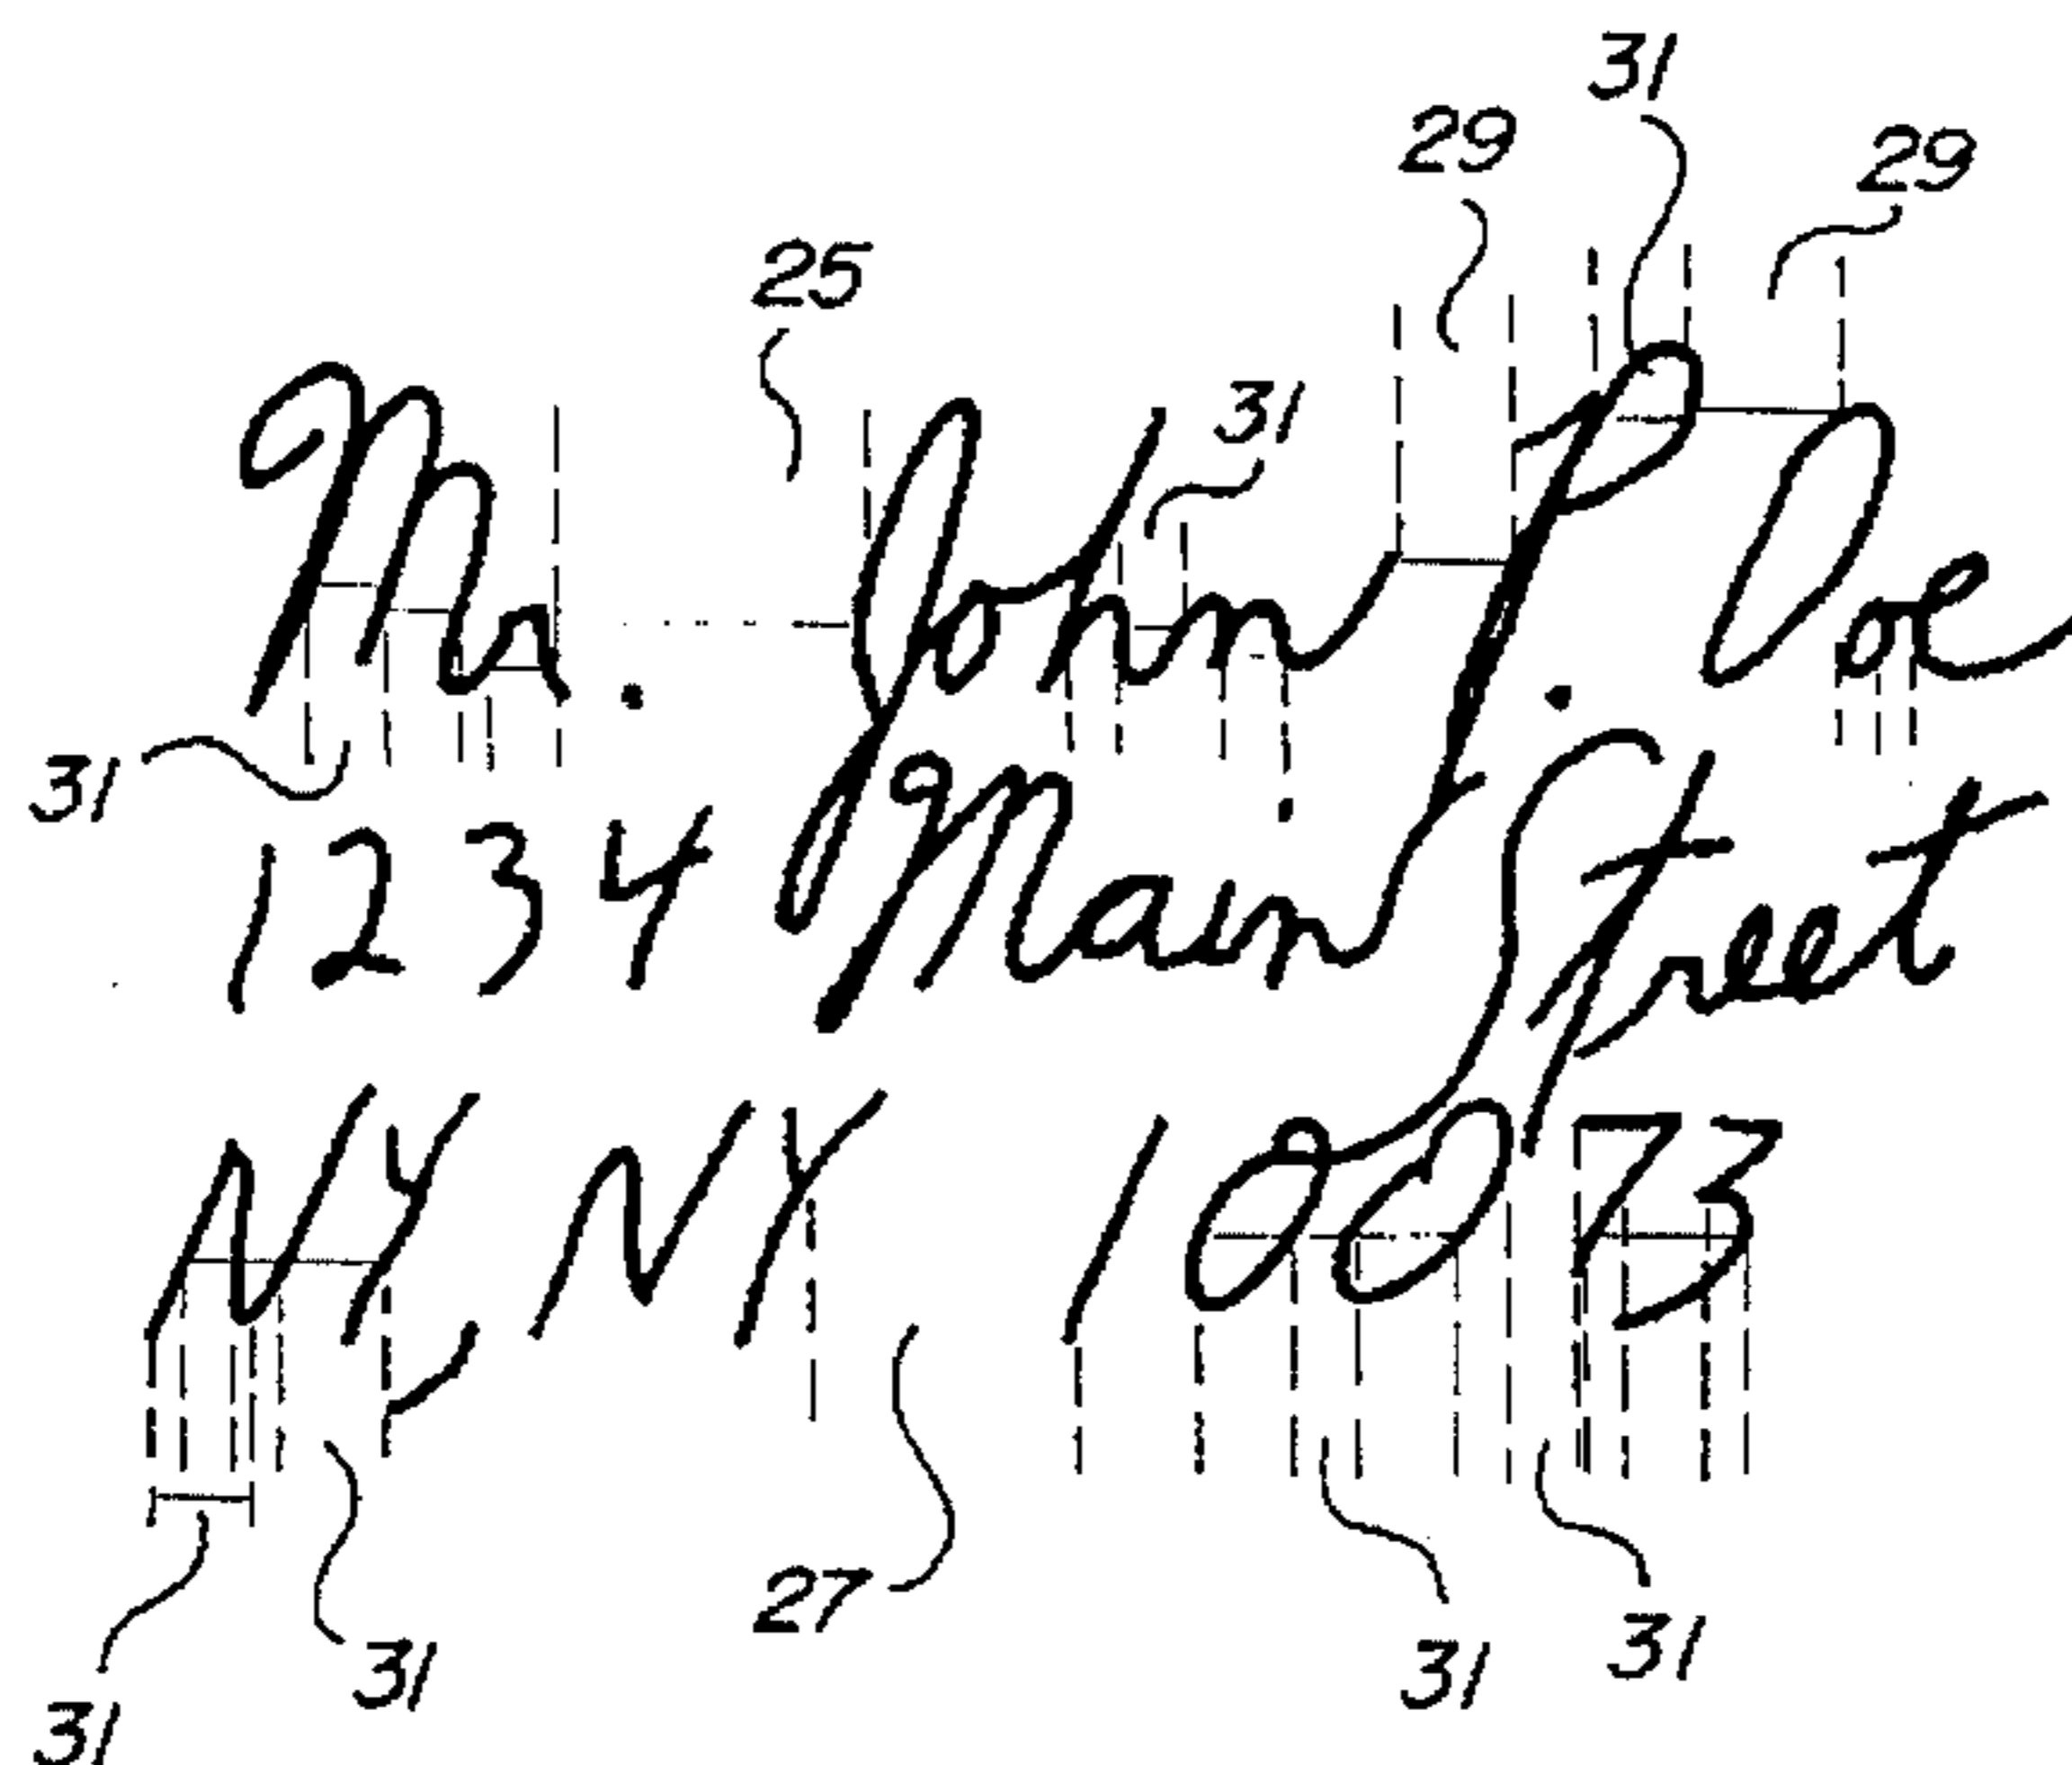 31
29 29
25
31
Mr. John P. Doe
31
1234 Main Street
NY, NY 10073
27
31 31 31
31